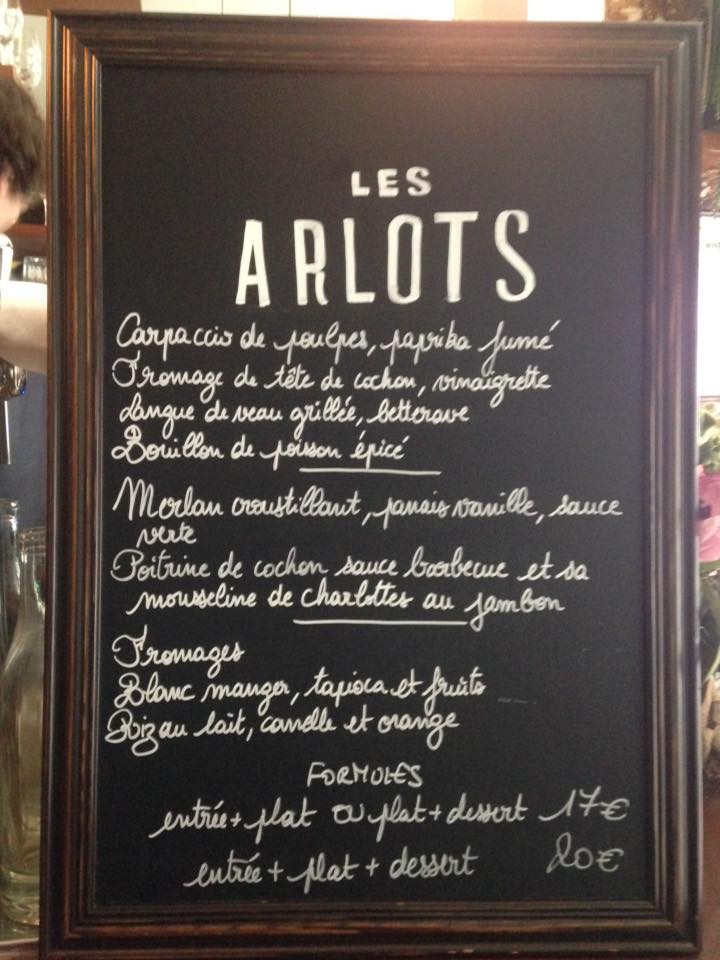 LES
ARLOTS
Carpaccio de poulpes, paprika fumé
Fromage de tête de cochon, vinaigrette
Langue de veau grillée, betterave
Bouillon de poisson épicé
Merlan croustillant, panais vanille, sauce
verte
Poitrine de cochon sauce barbecue et sa
mousseline de charlottes au jambon
Fromages
Blanc manger, tapioca et fruits
Riz au lait, canelle et orange
FORMULES
entrée + plat ou plat + dessert 17€
entrée + plat + dessert 20€